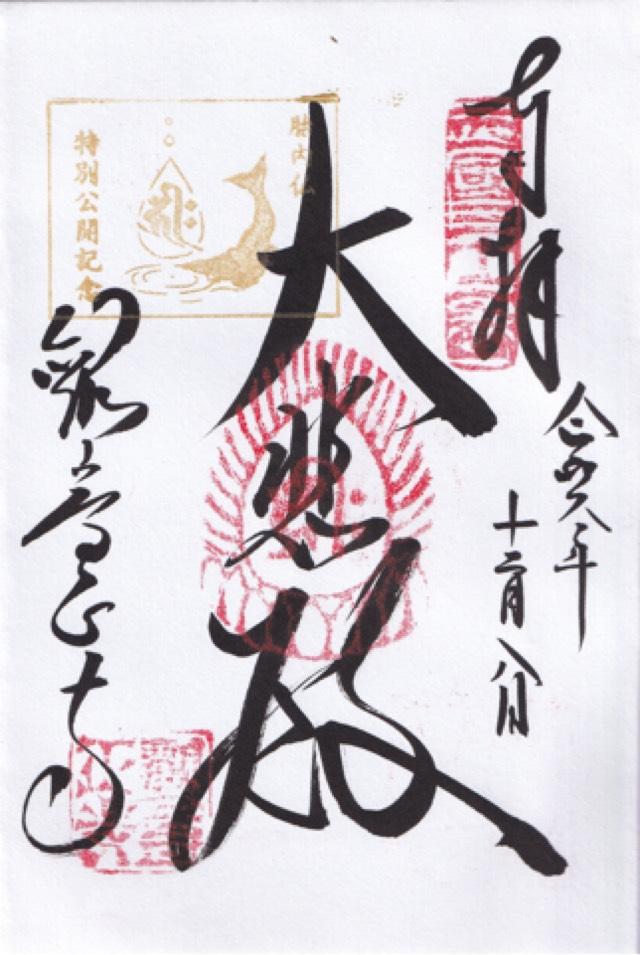 奉拝
令和六年
十二月八日
大悲殿
胎内仏
特別公開記念
観音正寺